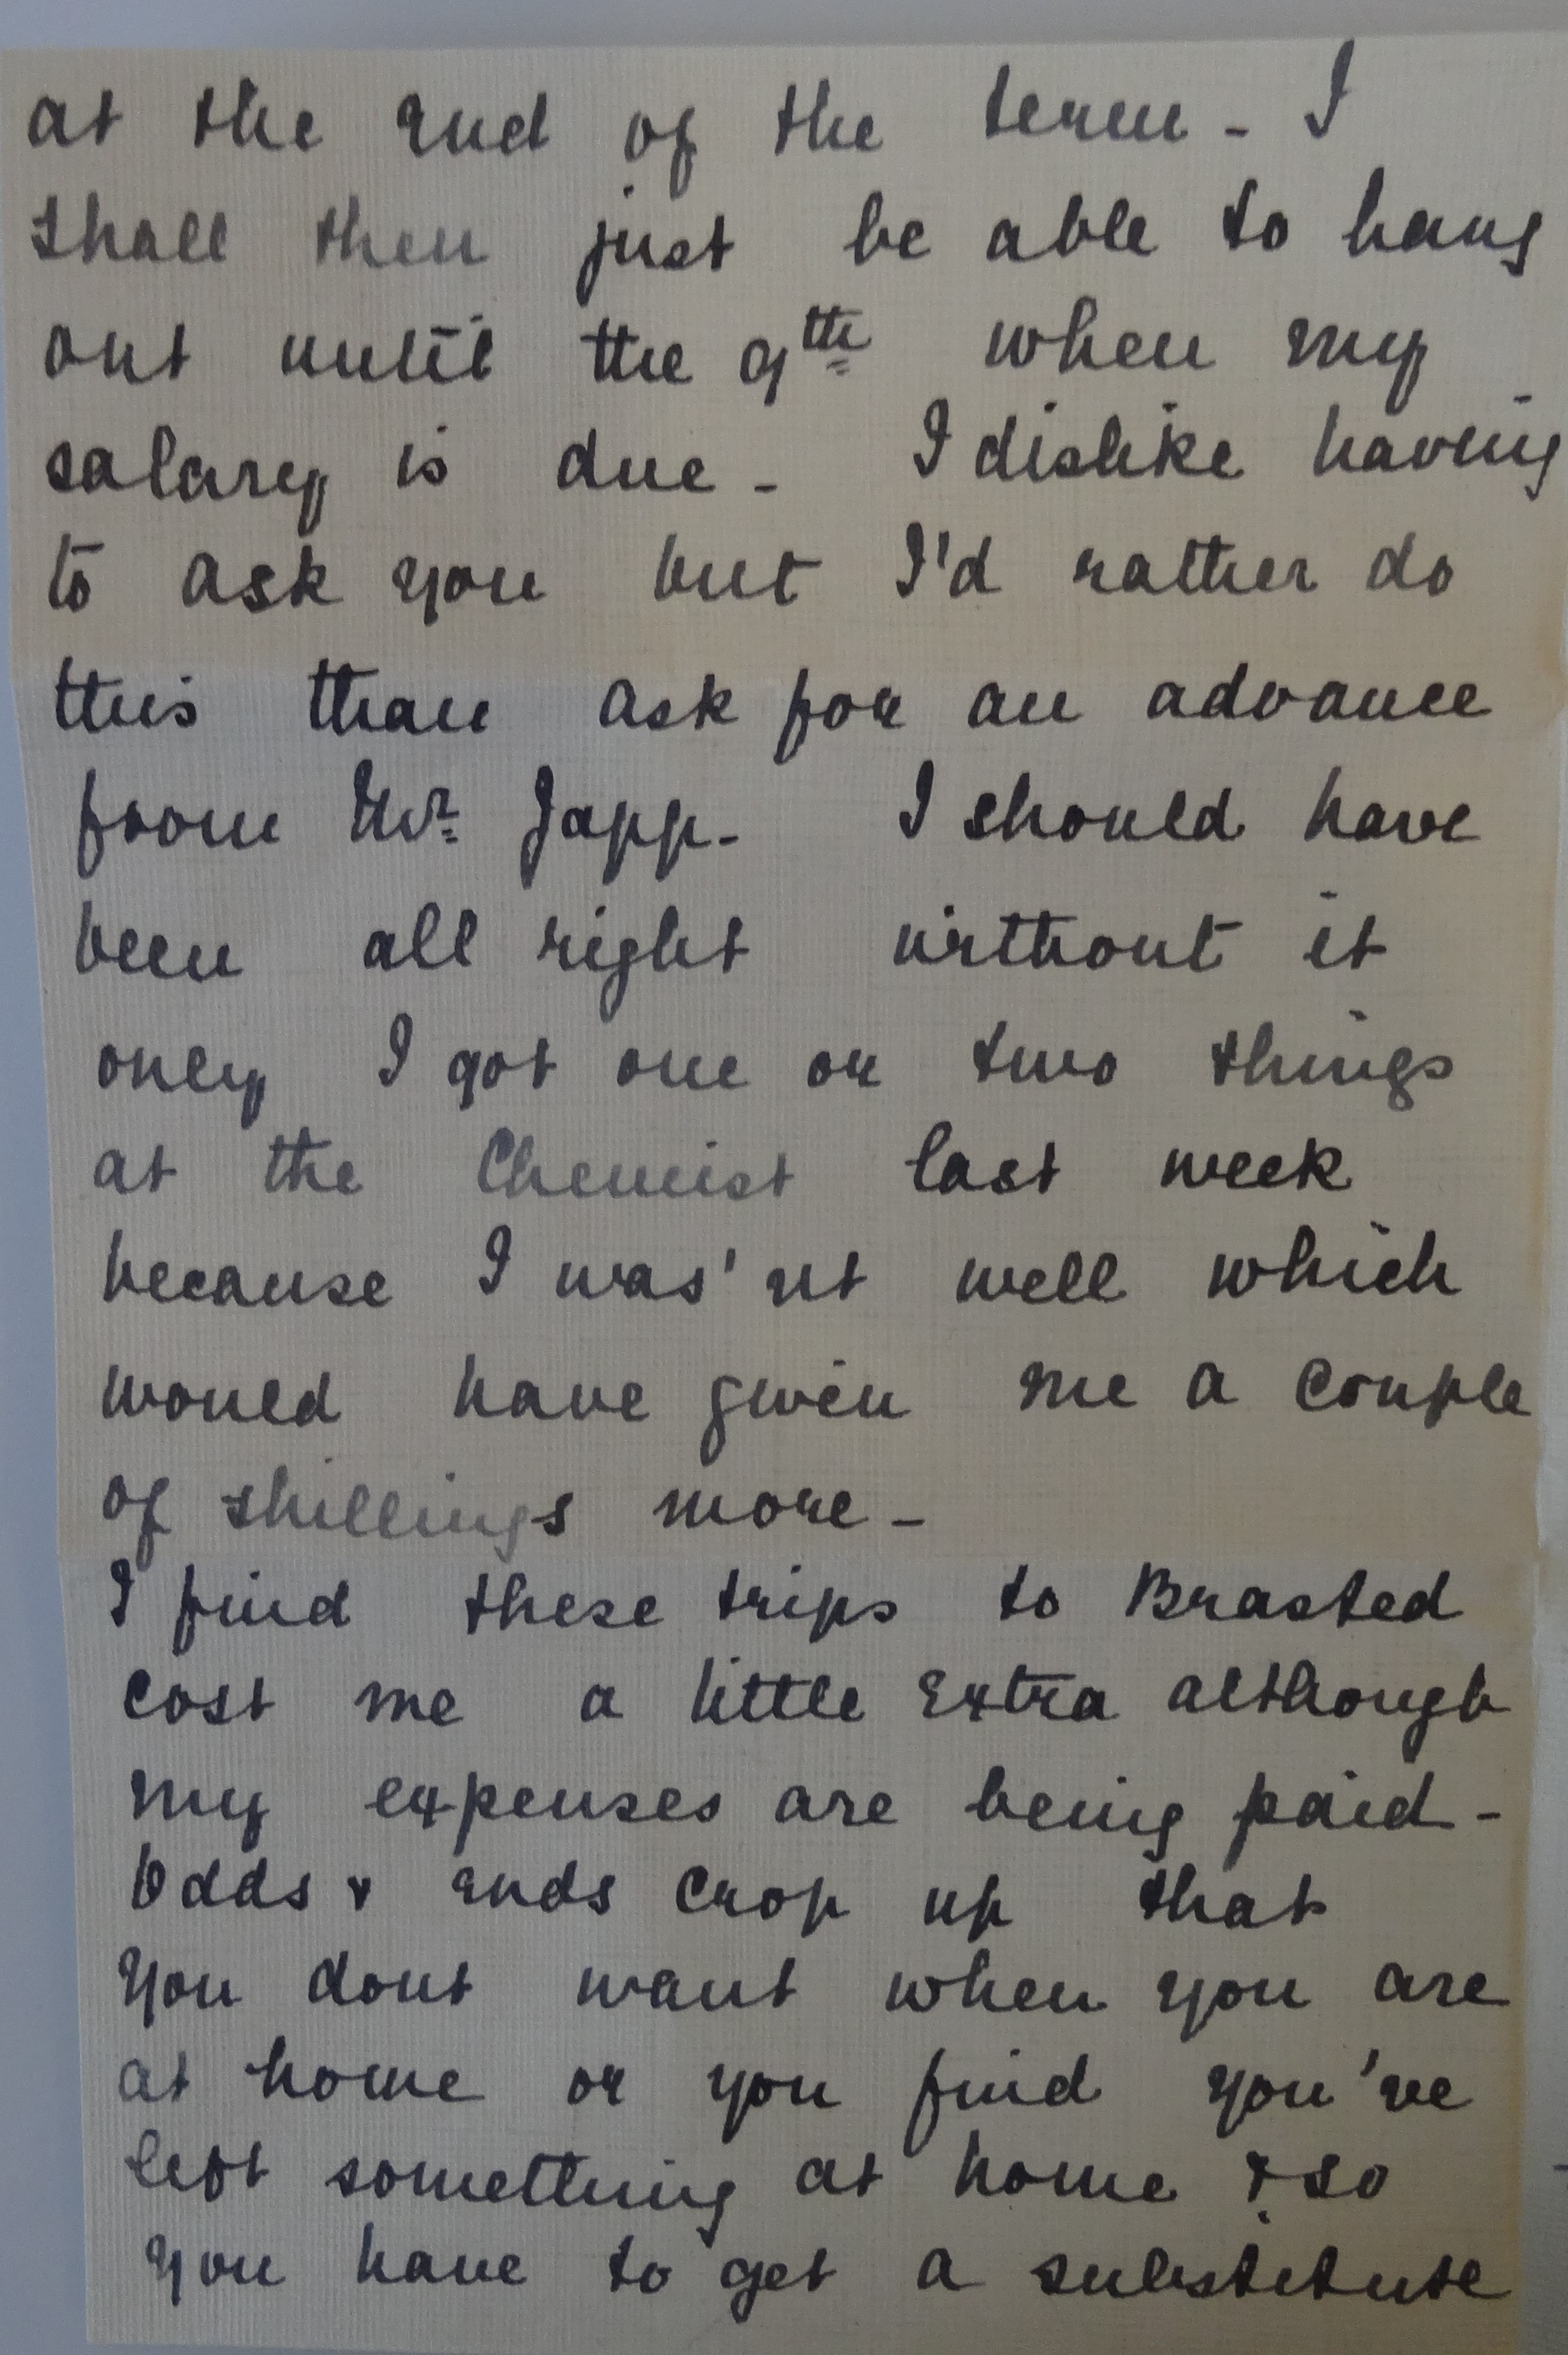 at the end of the term - I
shall then just be able to hang
out until the 9th when my
salary is due - I dislike having
to ask you but I'd rather do
this than ask for an advance
from Mr. Japp - I should have
been all right without it
only I got one or two things
at the Chemist last week
because I was'nt well which
would have given me a couple
of shillings more -
I find these trips to Brasted
cost me a little extra although
my expenses are being paid -
Odds & ends crop up that
you dont want when you are
at home or you find you've
left something at home & so
you have to get a substitute